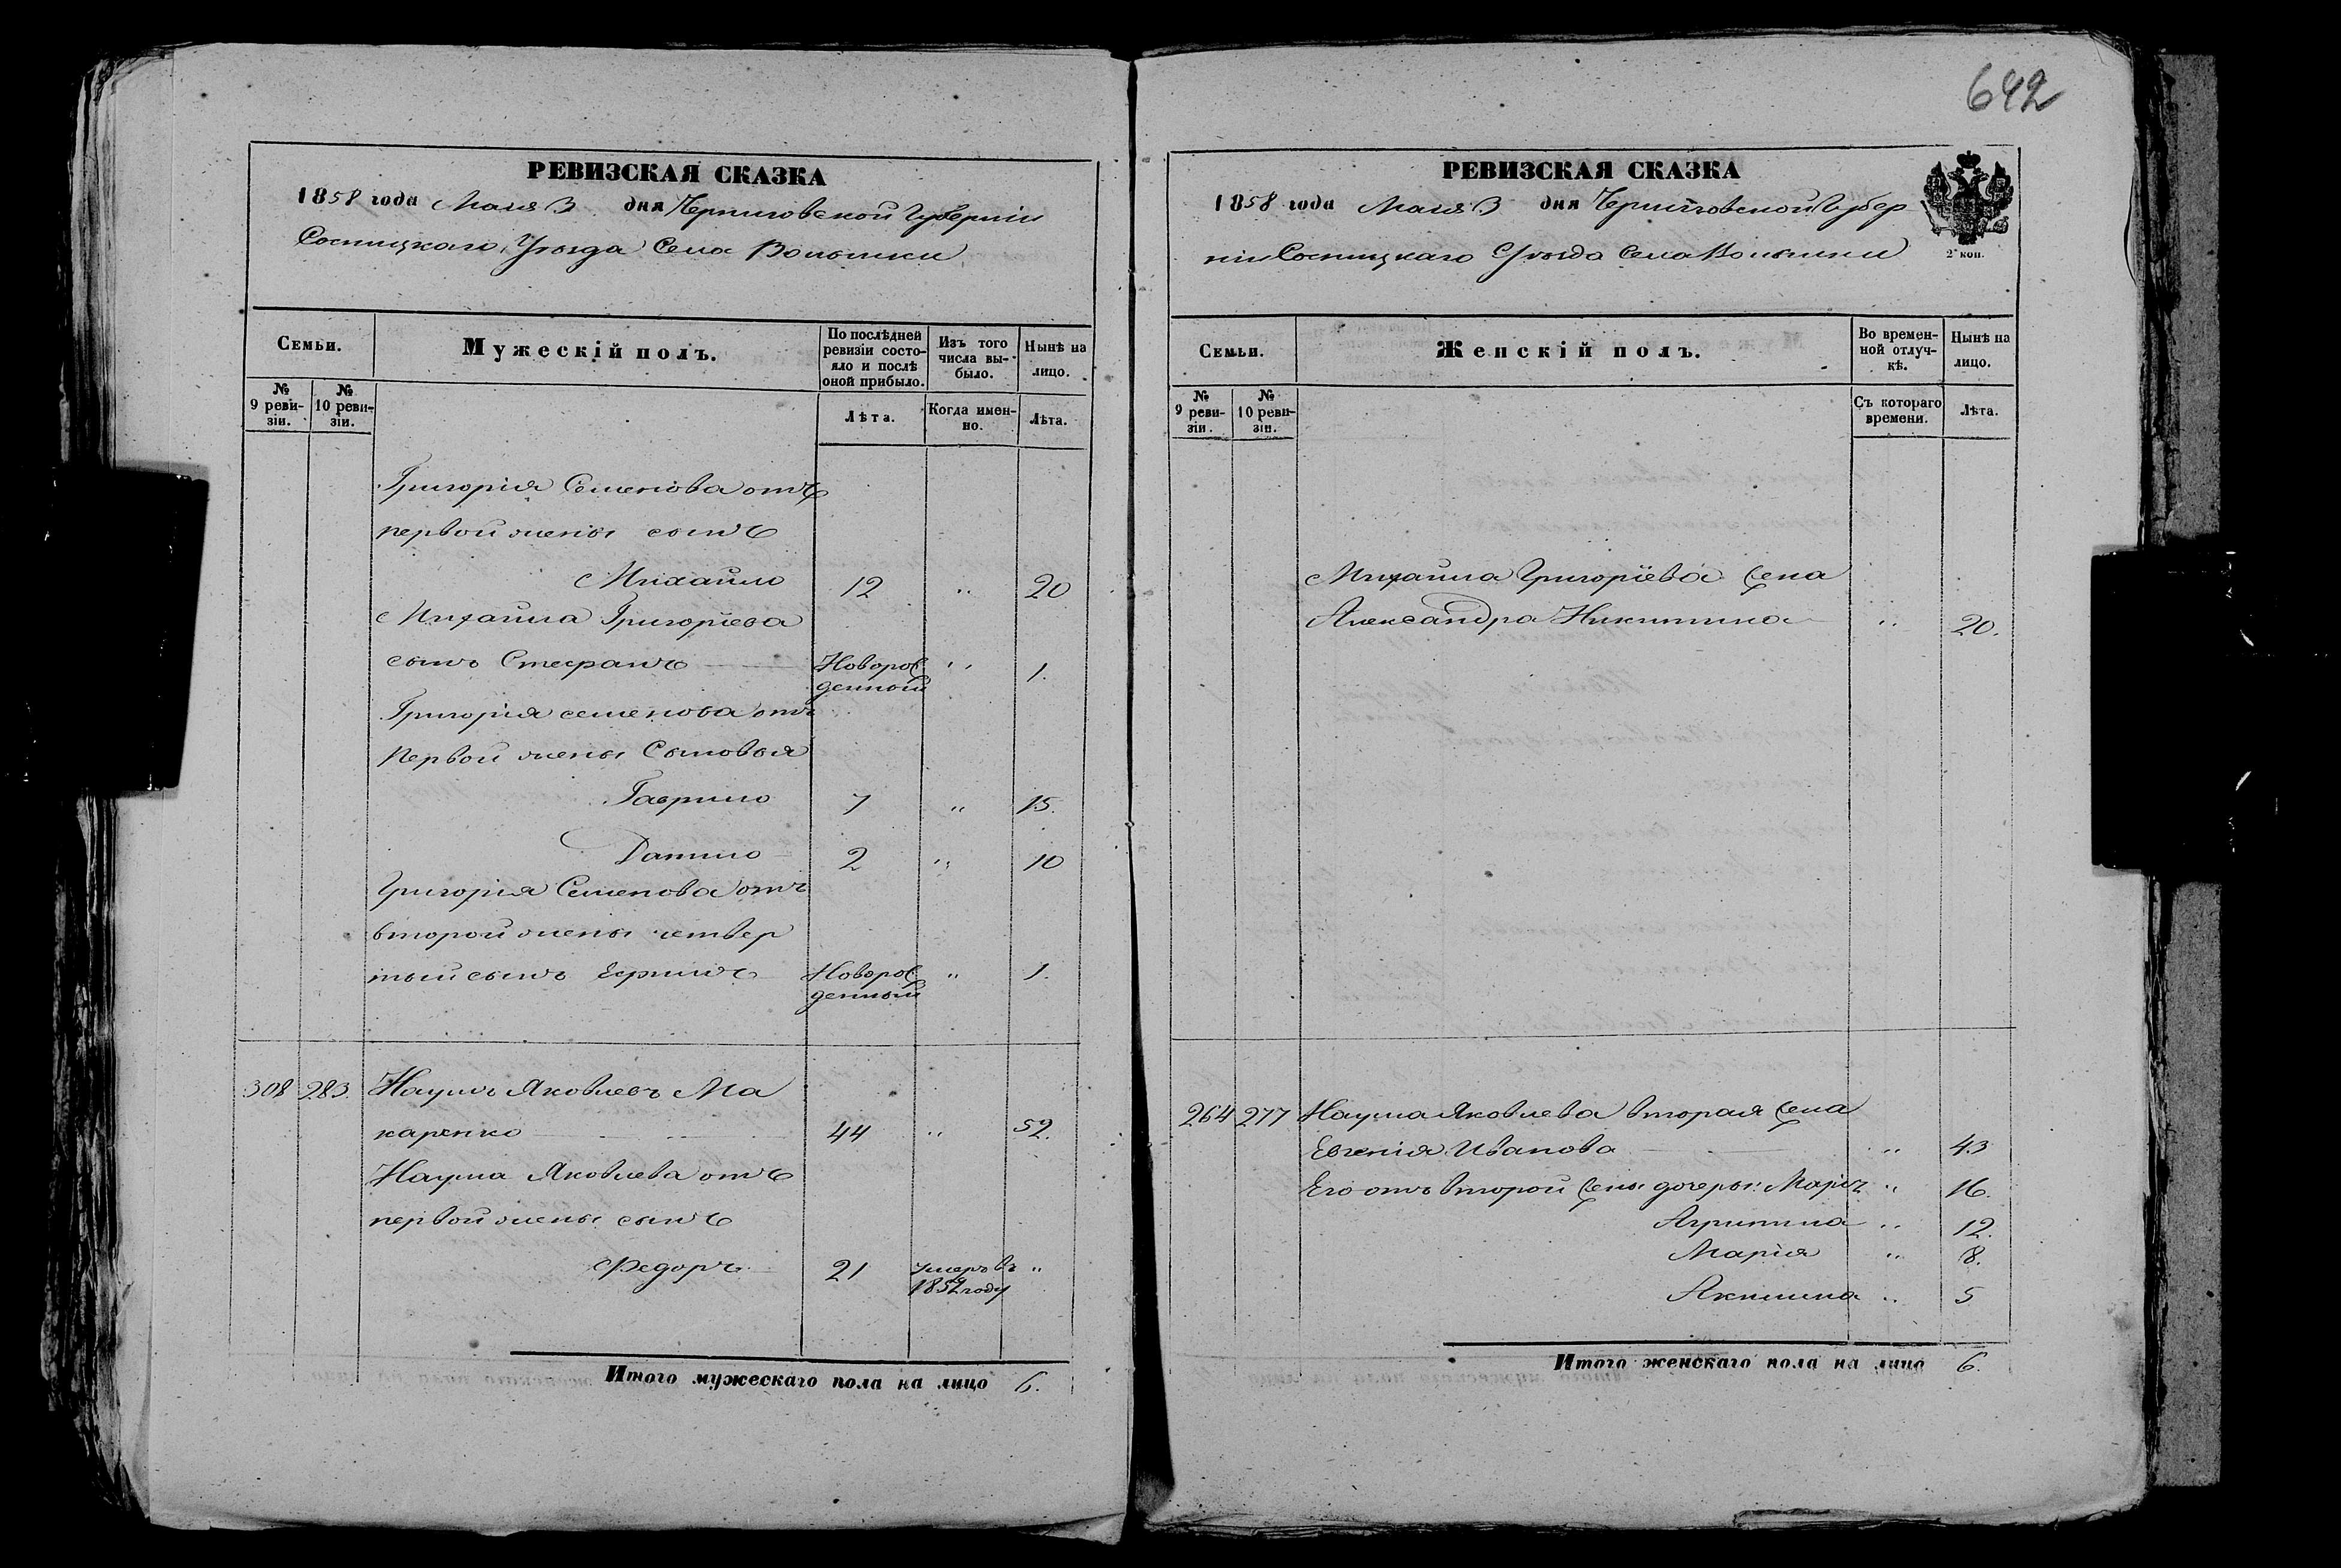 642
РЕВИЗСКАЯ СКАЗКА
1858 года Маия 3 дня Черниговской Губерніи
Сосницкаго Уѣзда Села Волынки
Семьи.
Мужескій полъ.
По послѣдней ревизіи состо-
яло и послѣ оной прибыло.
Изъ того числа вы-
было.
Нынѣ на лицо.
№ 9 реви-
зіи.
№ 10 реви-
зіи.
Лѣта.
Когда имен-
но.
Лѣта.
Григорія Семенова отъ
первой жены сынъ
Михайло 12 " 20
Михайла Григоріева
сынъ Стефанъ Новорож
денный " 1.
Григорія семенова отъ
первой жены Сыновья
Гаврило 7 " 15.
Данило 2 " 10
Григорія Семенова отъ
второй жены четвер
тый сынъ Новорож
денный " 1.
308 283. Наумъ Яковлевъ Ма
каренко 44 " 52.
Наума Яковлева отъ
первой жены сынъ
Федоръ 21 умеръ въ "
1852 году
Итого мужескаго пола на лицо 6.
РЕВИЗСКАЯ СКАЗКА
1858 года Маия 3 дня Черниговской Губер
ніи Сосницкаго Уѣзда Села Волынки
2 коп.
Семьи.
Женскій полъ.
Во времен-
ной отлуч-
кѣ.
Нынѣ на лицо.
№ 9 реви-
зіи.
№ 10 реви-
зіи.
Съ котораго времени.
Лѣта.
Михайла Григоріева жена
Александра Никитина " 20.
264 277 Наума Яковлева вторая жена
Евгенія Иванова " 43
Его отъ второй жены дочери: " 16.
Агрипина " 12.
Марія " 8.
Акилина " 5
Итого женскаго пола на лицо 6.